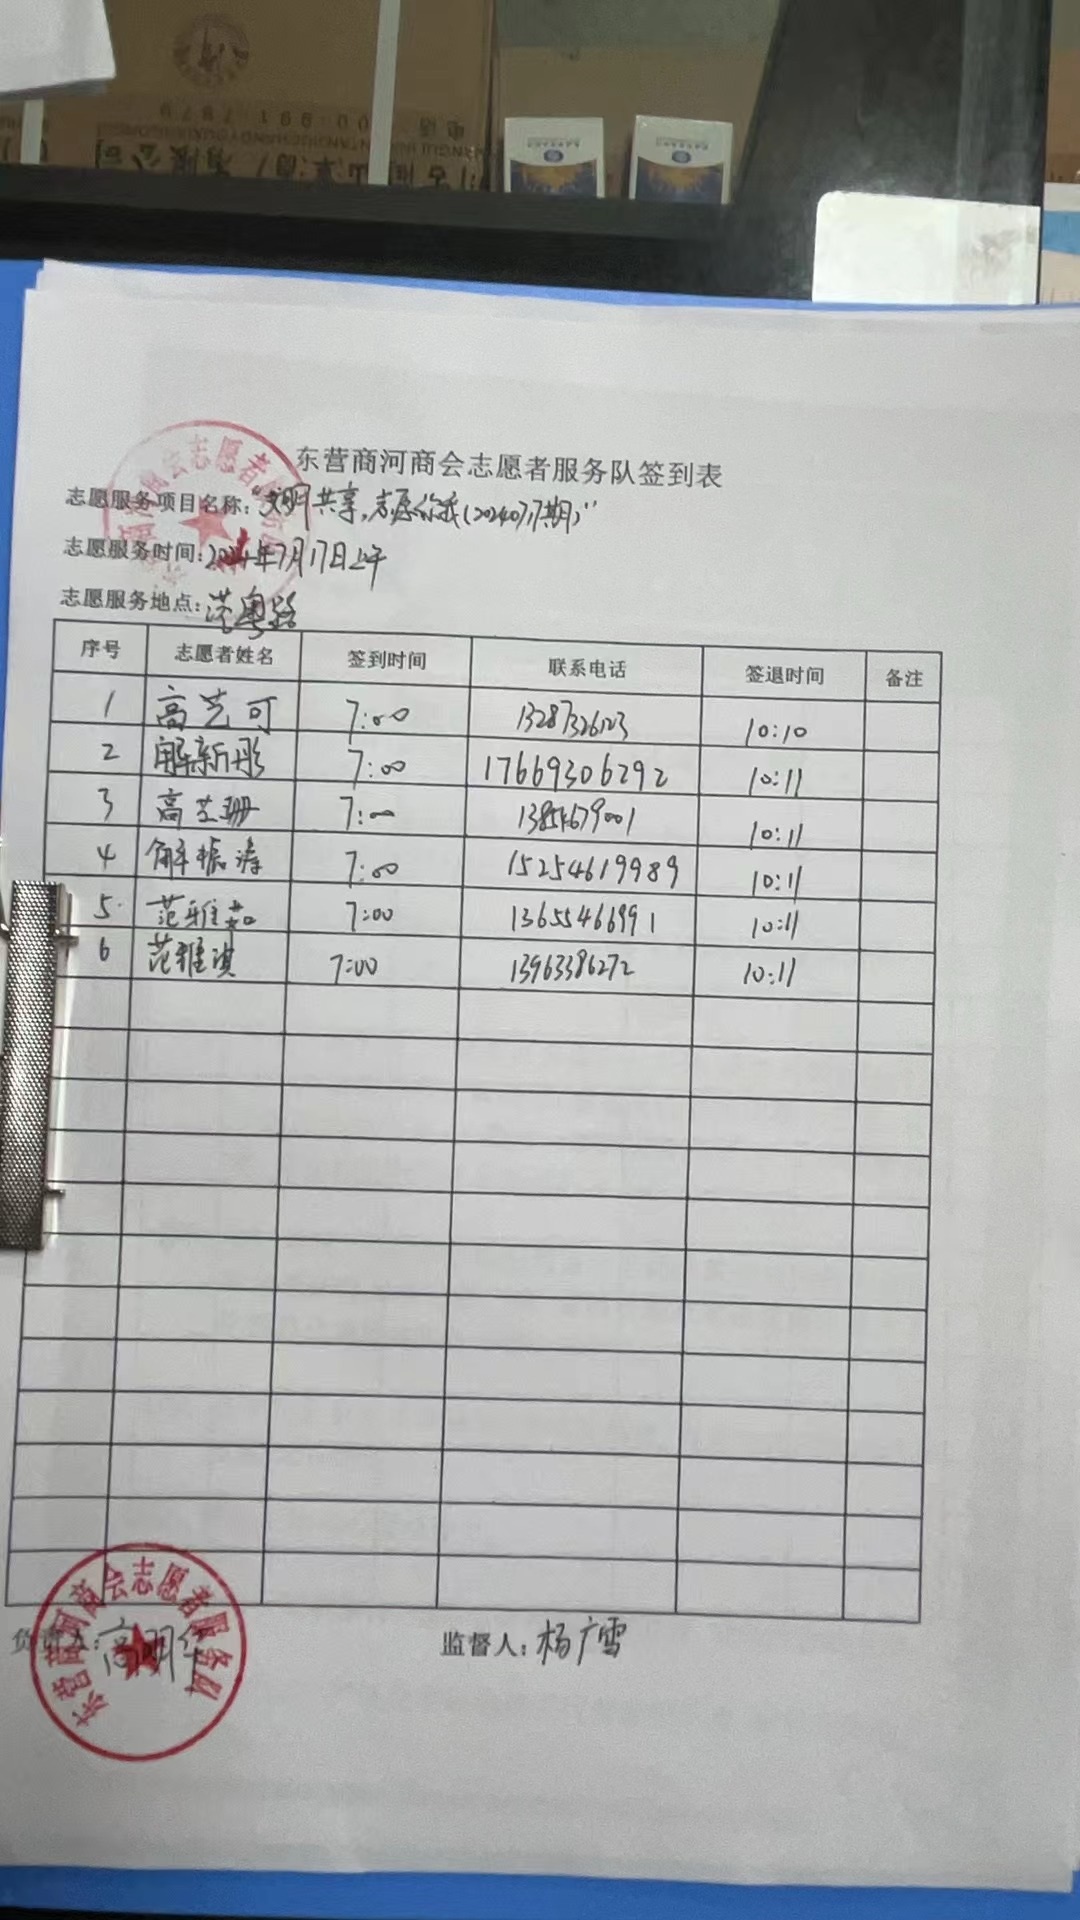 东营商河商会志愿者服务队签到表
志愿服务项目名称：“文明共享，志愿你我（20240717期）”
志愿服务时间：2024年7月17日上午
志愿服务地点：港粤路
序号 志愿者姓名 签到时间 联系电话 签退时间 备注
1 高艺可 7:00 13287326123 10:10
2 解新彤 7:00 17669306292 10:11
3 高芝珊 7:00 13854679001 10:11
4 解振涛 7:00 15254619989 10:11
5 范雅茹 7:00 13655466991 10:11
6 范雅淇 7:00 13963386272 10:11
负责人：高明华 监督人：杨广雪
东营商河商会志愿者服务队